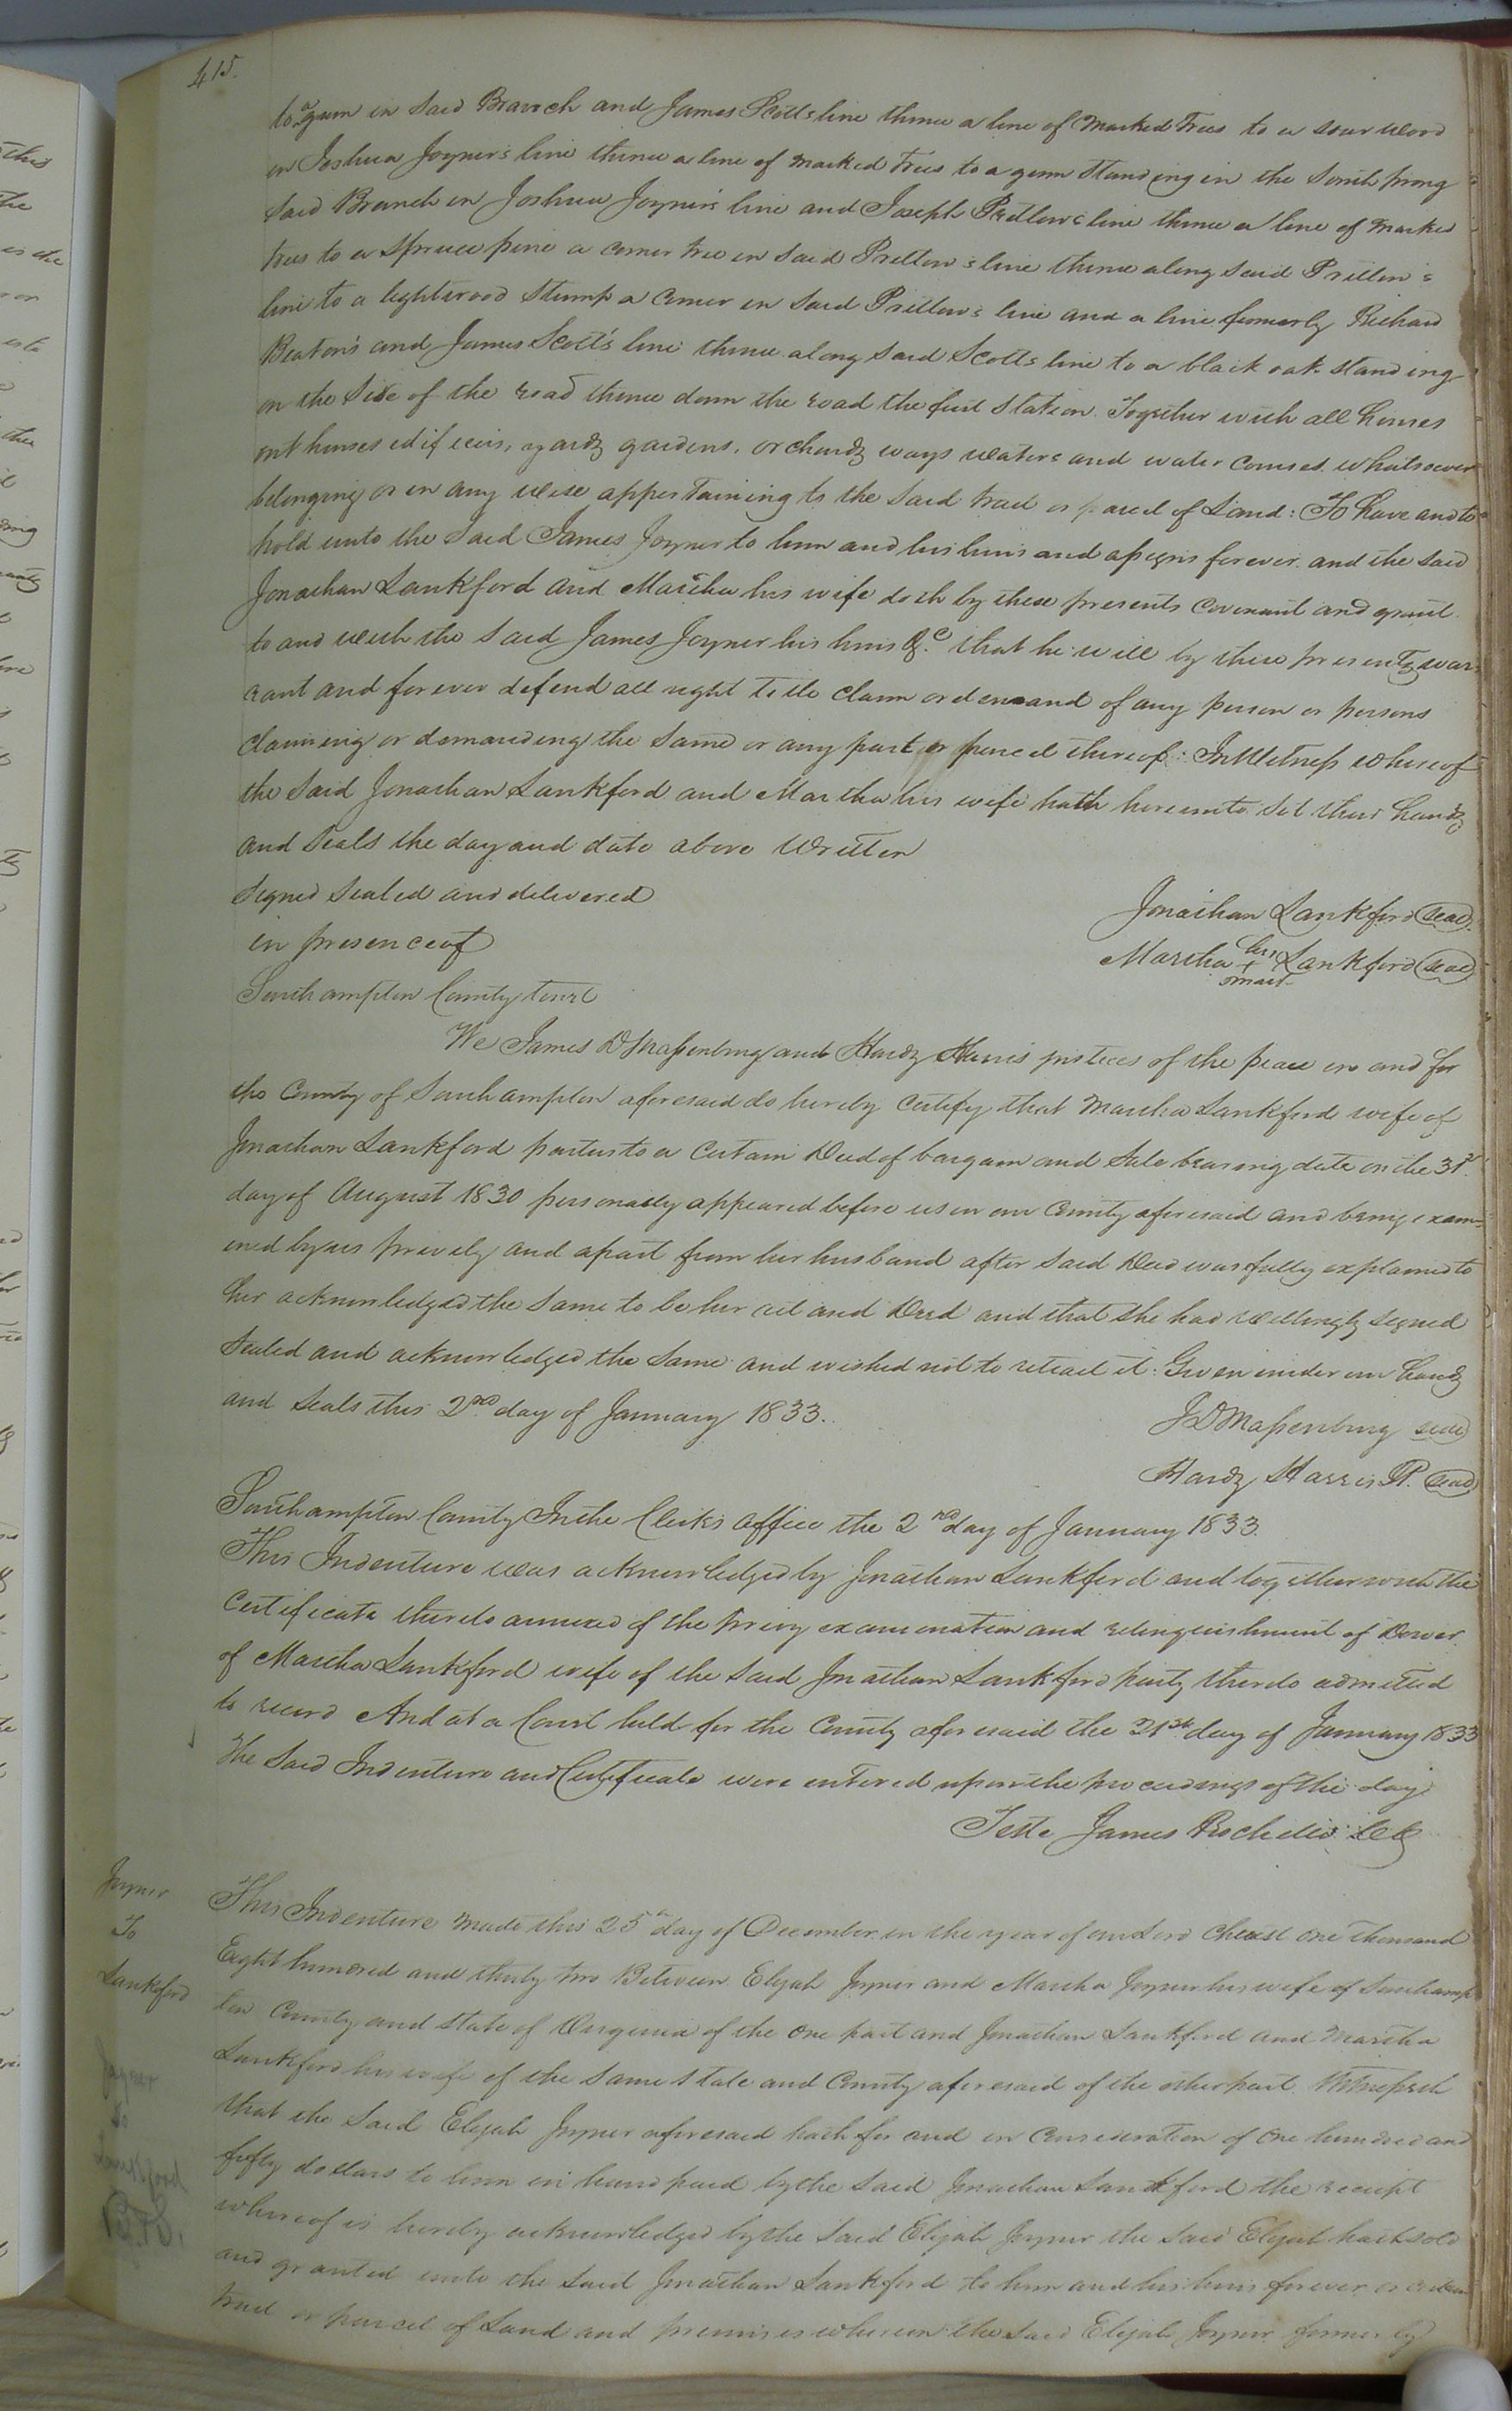 415.
to a gum in said Branch and James Scotts line thence a line of marked trees to a sour wood
in Joshua Joyner's line thence a line of marked trees to a gum standing in the South prong
said Branch in Joshua Joyner's line and Joseph Pretlow's line thence a line of marked
trees to a spruce pine a corner tree in said Pretlow's line thence along said Pretlow's
line to a lightwood stump a corner in said Pretlow's line and a line formerly Richard
Beaton's and James Scott's line thence along said Scotts line to a black oak standing
on the side of the road thence down the road the first station. Together with all houses
out houses edifices, yards gardens, orchards ways waters and water courses whatsoever
belonging or in any wise appertaining to the said tract or parcel of Land: To have and to
hold unto the said James Joyner to him and his heirs and assigns forever. and the said
Jonathan Lankford and Martha his wife doth by these presents covenant and grant
to and with the said James Joyner his heirs &c. that he will by these presents war-
rant and forever defend all right title claim or demand of any person or persons
claiming or demanding the same or any part or parcel thereof: In Witness whereof
the said Jonathan Lankford and Martha his wife hath hereunto set their hands
and seals the day and date above written
Signed sealed and delivered
in presence of
Jonathan Lankford seal
Martha her + mark Lankford seal
Southampton County towit
We James D Massenburg and Hardy Harris justices of the peace in and for
the County of Southampton aforesaid do hereby certify that Martha Lankford wife of
Jonathan Lankford parties to a certain Deed of bargain and sale bearing date on the 31st
day of August 1830 personally appeared before us in our County aforesaid and being exam-
ined by us privily and apart from her husband after said Deed was fully explained to
her acknowledged the same to be her act and Deed and that she had willingly signed
sealed and acknowledged the same and wished not to retract it. Given under our hands
and seals this 2nd day of January 1833.
J D Massenburg seal
Hardy Harris JP. seal
Southampton County In the Clerk's office the 2nd day of January 1833.
This Indenture was acknowledged by Jonathan Lankford and together with the
Certificate thereto annexed of the privy examination and relinquishment of Dower
of Martha Lankford wife of the said Jonathan Lankford party thereto admitted
to record And at a Court held for the County aforesaid the 21st day of January 1833
the said Indenture and Certificate were entered upon the proceedings of the day
Teste James Rochelle Clk
Joyner
To
Lankford
This Indenture made this 25th day of December in the year of our Lord Christ one thousand
Eight hundred and thirty two Between Elijah Joyner and Martha Joyner his wife of Southamp
ton County and State of Virginia of the one part and Jonathan Lankford and Martha
Lankford his wife of the same State and County aforesaid of the other part Witnesseth
that the said Elijah Joyner aforesaid hath for and in consideration of One hundred and
fifty dollars to him in hand paid by the said Jonathan Lankford the receipt
whereof is hereby acknowledged by the said Elijah Joyner the said Elijah hath sold
and granted unto the said Jonathan Lankford to him and his heirs forever a certain
tract or parcel of Land and premises whereon the said Elijah Joyner formerly
Joyner
to
Lankford